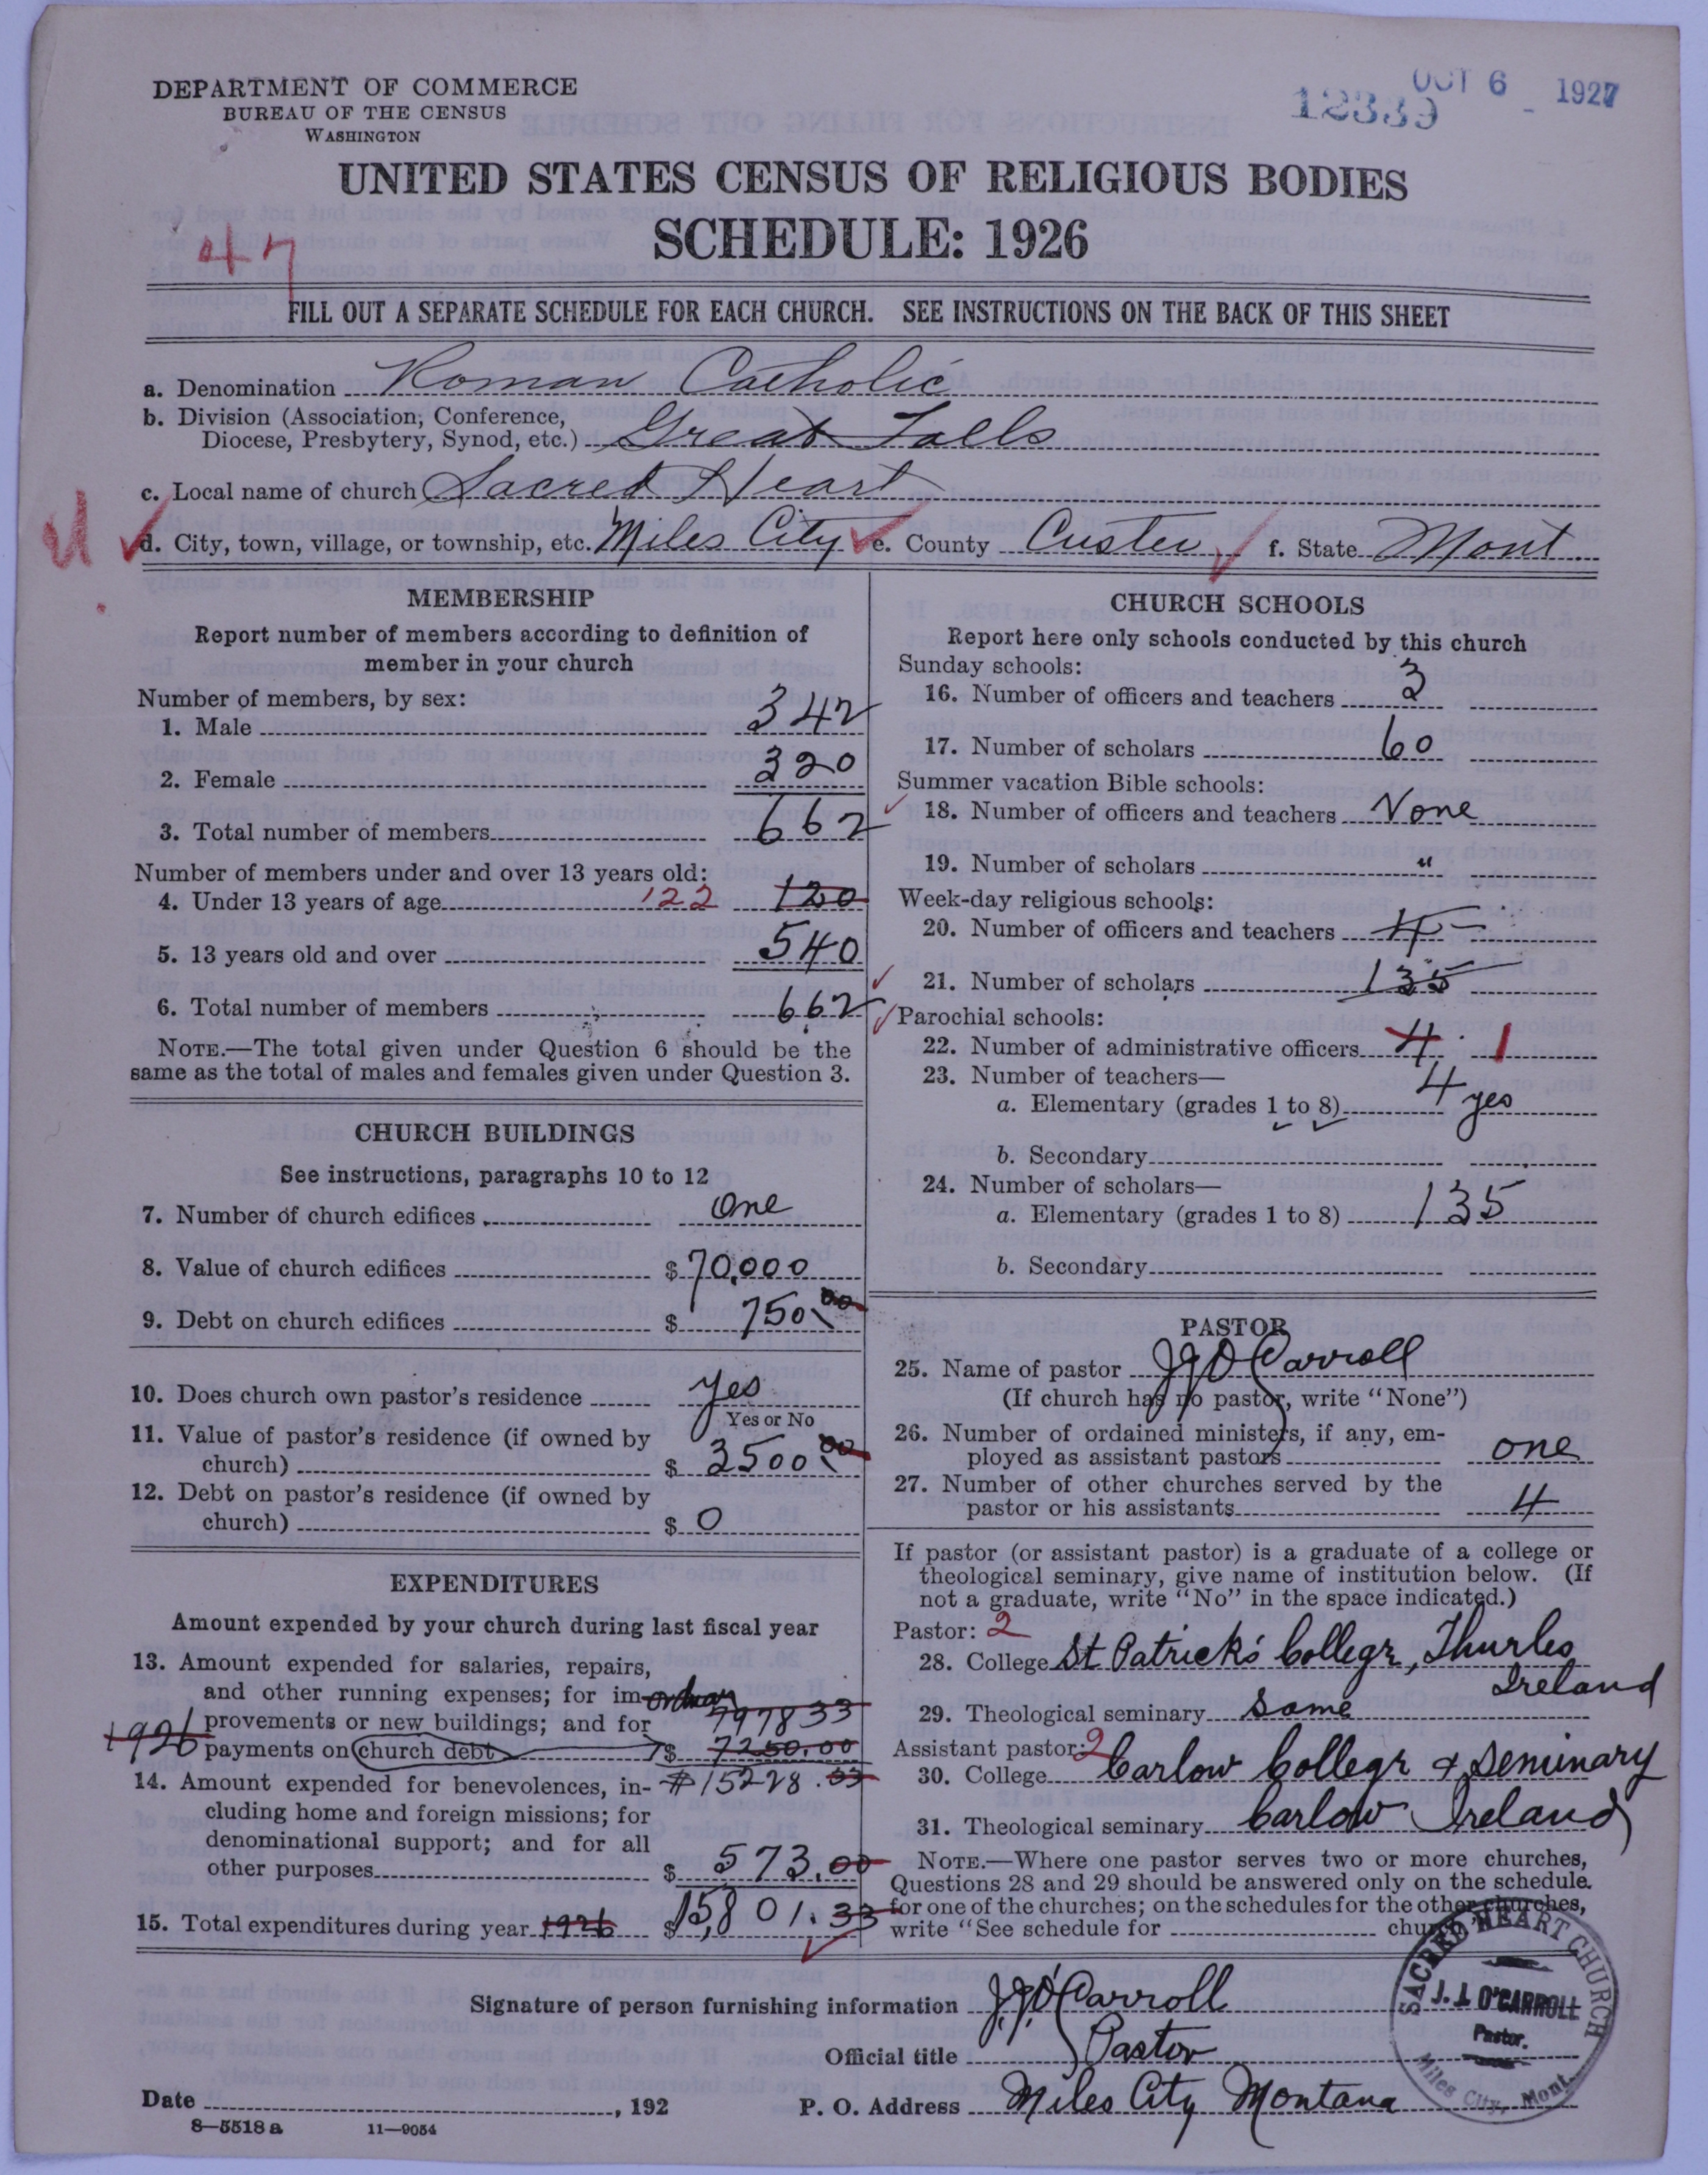 DEPARTMENT OF COMMERCE
BUREAU OF THE CENSUS
WASHINGTON
OCT 6 1927
12339
UNITED STATES CENSUS OF RELIGIOUS BODIES
SCHEDULE: 1926
47
FILL OUT A SEPARATE SCHEDULE FOR EACH CHURCH. SEE INSTRUCTIONS ON THE BACK OF THIS SHEET
a. Denomination Roman Catholic
b. Division (Association, Conference,
Diocese, Presbytery, Synod, etc.) Great Falls
c. Local name of church Sacred Heart
d. City, town, village, or township, etc. Miles City e. County Custer f. State Mont.
MEMBERSHIP
Report number of members according to definition of
member in your church
Number of members, by sex:
1. Male 342
2. Female 320
3. Total number of members 662
Number of members under and over 13 years old:
4. Under 13 years of age 122 120
5. 13 years old and over 540
6. Total number of members 662
NOTE.—The total given under Question 6 should be the
same as the total of males and females given under Question 3.
CHURCH BUILDINGS
See instructions, paragraphs 10 to 12
7. Number of church edifices One
8. Value of church edifices $ 70,000
9. Debt on church edifices $ 750 00
10. Does church own pastor's residence yes
Yes or No
11. Value of pastor's residence (if owned by
church) $ 3500 00
12. Debt on pastor's residence (if owned by
church) $ 0
EXPENDITURES
Amount expended by your church during last fiscal year
13. Amount expended for salaries, repairs,
and other running expenses; for im-
provements or new buildings; and for 7978 33
1926 payments on church debt $ 7250.00
14. Amount expended for benevolences, in- $ 15228.33
cluding home and foreign missions; for
denominational support; and for all
other purposes $ 573.00
15. Total expenditures during year 1926 $ 15,801.33
CHURCH SCHOOLS
Report here only schools conducted by this church
Sunday schools:
16. Number of officers and teachers 3
17. Number of scholars 60
Summer vacation Bible schools:
18. Number of officers and teachers None
19. Number of scholars "
Week-day religious schools:
20. Number of officers and teachers 4
21. Number of scholars 135
Parochial schools:
22. Number of administrative officers 4 1
23. Number of teachers—
a. Elementary (grades 1 to 8) 4 yes
b. Secondary
24. Number of scholars—
a. Elementary (grades 1 to 8) 135
b. Secondary
PASTOR
25. Name of pastor J J O'Carroll
(If church has no pastor, write "None")
26. Number of ordained ministers, if any, em-
ployed as assistant pastors one
27. Number of other churches served by the
pastor or his assistants 4
If pastor (or assistant pastor) is a graduate of a college or
theological seminary, give name of institution below. (If
not a graduate, write "No" in the space indicated.)
Pastor: 2
28. College St Patrick's College, Thurles
Ireland
29. Theological seminary same
Assistant pastor: 2
30. College Carlow College & Seminary
31. Theological seminary Carlow Ireland
NOTE.—Where one pastor serves two or more churches,
Questions 28 and 29 should be answered only on the schedule
for one of the churches; on the schedules for the other churches,
write "See schedule for church."
Signature of person furnishing information J.J. O'Carroll
Official title Pastor
Date , 192 P. O. Address Miles City Montana
8—5518 a 11—9054
SACRED HEART CHURCH
J. J. O'CARROLL
Pastor.
Miles City, Mont.